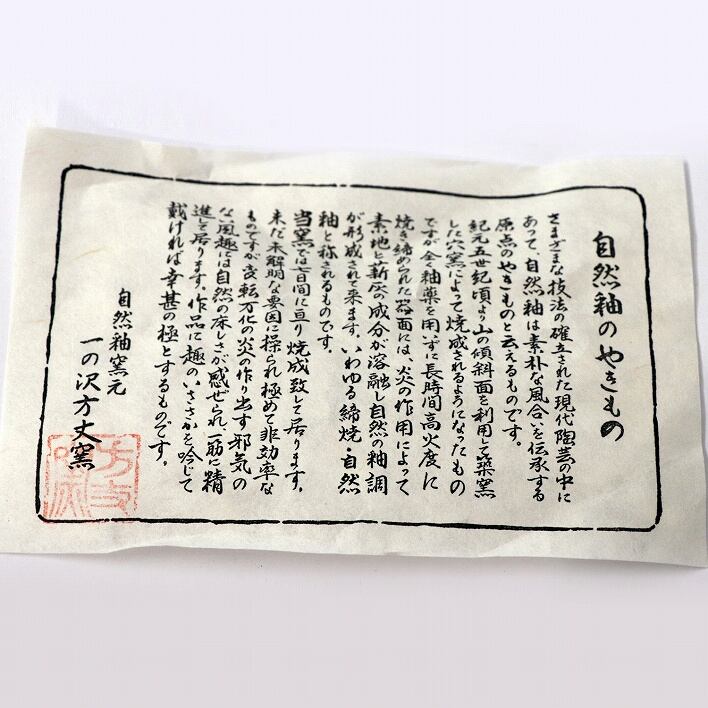 自然釉のやきもの
さまざまな技法の確立された現代陶芸の中に
あって、自然釉は素朴な風合いを伝承する
原点のやきものと云えるものです。
紀元五世紀頃より山の傾斜面を利用して築窯
した穴窯によって焼成されるようになったもの
ですが全く釉薬を用いずに長時間高火度に
焼き締められた器面には、炎の作用によって
素地と薪灰の成分が溶融し自然の釉調
が形成されて来ます。いわゆる締焼・自然
釉と称されるものです。
当窯では七日間に亘り焼成致して居ります。
未だ未解明な要因に操られ極めて非効率な
ものですが変転万化の炎の作り出す邪気の
ない風趣には自然の床しさが感ぜられ、一筋に精
進して居ります。作品に趣のいささかを吟じて
戴ければ幸甚の極とするものです。
自然釉窯元
一の沢方丈窯